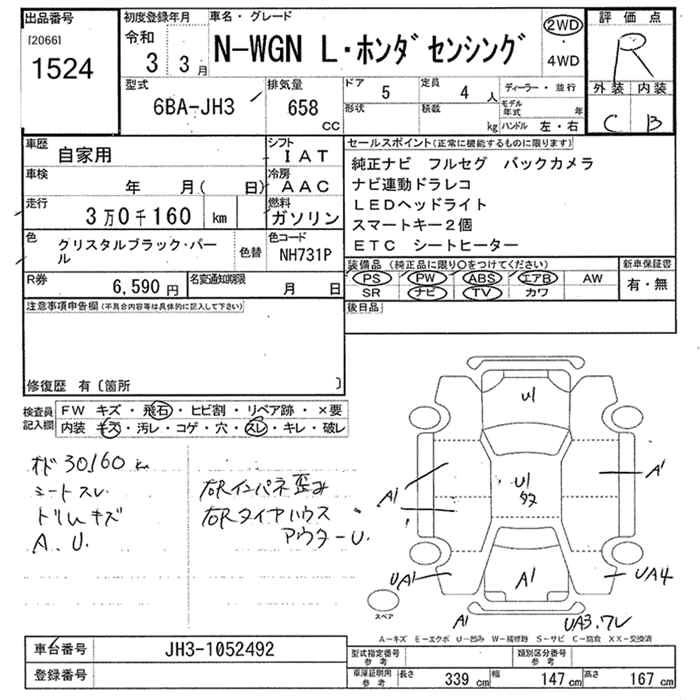 出品番号
[2066]
1524
初度登録年月
令和
3 3月
車名・グレード
N-WGN L・ホンダセンシング
2WD
・
4WD
評価点
R
外装 内装
C B
型式
6BA-JH3
排気量
658
cc
ドア
5
定員
4 人
形状
積載
kg
ディーラー・並行
モデル年式 年
ハンドル 左・右
車歴
自家用
シフト
IAT
車検
年 月( 日)
冷房
AAC
走行
3万0千160 km
燃料
ガソリン
色
クリスタルブラック・パール
色替
色コード
NH731P
R券
6,590 円
名変通知期限
月 日
セールスポイント(正常に機能するものに限ります)
純正ナビ フルセグ バックカメラ
ナビ連動ドラレコ
LEDヘッドライト
スマートキー2個
ETC シートヒーター
装備品(純正品に限り○をつけてください)
PS PW ABS エアB AW
SR ナビ TV カワ
新車保証書
有・無
後日品
注意事項申告欄(不具合内容等は具体的に記入して下さい)
修復歴 有〔箇所 〕
検査員記入欄
FW キズ・飛石・ヒビ割・リペア跡・×要
内装 キズ・汚レ・コゲ・穴・スレ・キレ・破レ
オド30160km
シートスレ
トリムキズ
A.U.
右Rインパネ歪み
右Rタイヤハウス
アウターU.
U1
U1
A1
A1
UA1
A1
UA4
A1
UA3.
スペア
A-キズ E-エクボ U-凹み W-補修跡 S-サビ C-腐食 XX-交換済
車台番号
JH3-1052492
登録番号
型式指定番号
参考
類別区分番号
参考
車庫証明用
参考
長さ 339 cm 幅 147 cm 高さ 167 cm